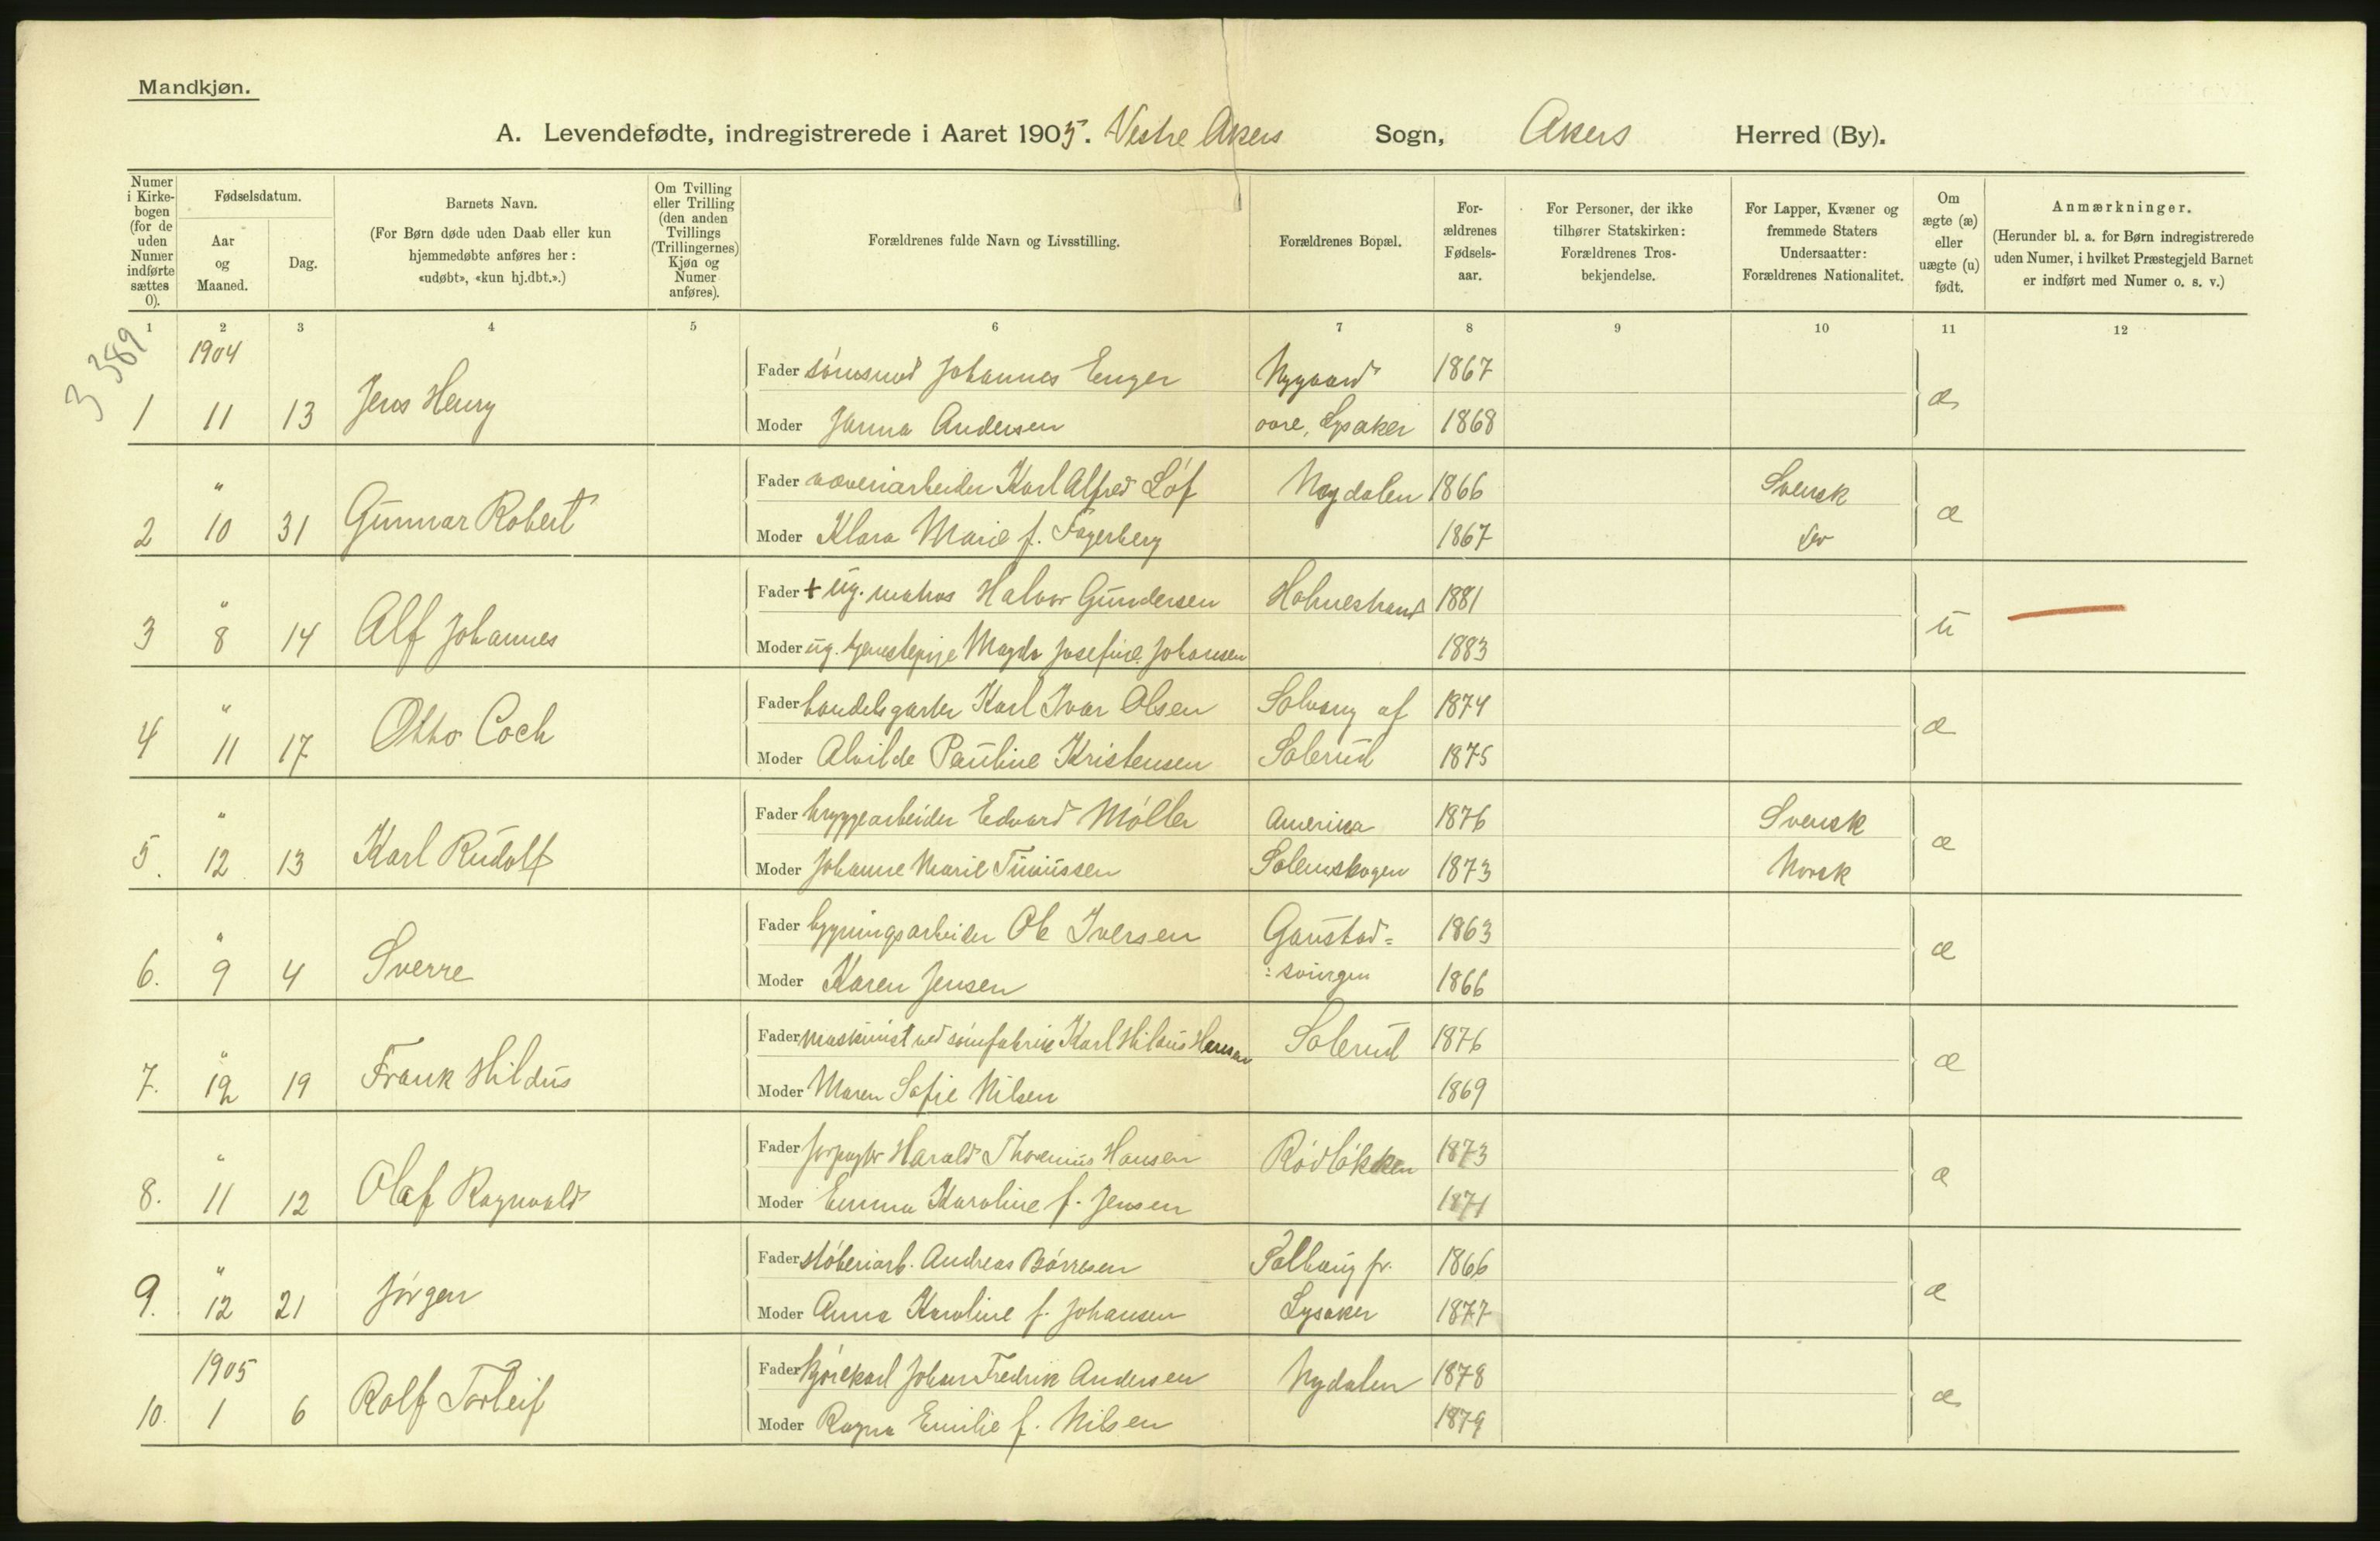 Mandkjøn.
A. Levendefødte, indregistrerede i Aaret 1905. Vestre Akers Sogn, Akers Herred (By).
Numer i Kirkebogen (for de uden Numer indførte sættes 0).
Fødselsdatum.
Aar og Maaned.
Dag.
Barnets Navn.
(For Børn døde uden Daab eller kun hjemmedøbte anføres her: «udøbt», «kun hj.dbt.».)
Om Tvilling eller Trilling (den anden Tvillings (Trillingernes) Kjøn og Numer anføres).
Forældrenes fulde Navn og Livsstilling.
Forældrenes Bopæl.
Forældrenes Fødselsaar.
For Personer, der ikke tilhører Statskirken: Forældrenes Trosbekjendelse.
For Lapper, Kvæner og fremmede Staters Undersaatter: Forældrenes Nationalitet.
Om ægte (æ) eller uægte (u) født.
Anmærkninger.
(Herunder bl. a. for Børn indregistrerede uden Numer, i hvilket Præstegjeld Barnet er indført med Numer o. s. v.)
1 2 3 4 5 6 7 8 9 10 11 12
3 389
1904
Fader sömsmed Johannes Enger Nygaard 1867
1 11 13 Jens Henry æ
Moder Janna Andersen Lysaker 1868
" Fader væveriarbeider Karl Alfred Löf Nydalen 1866 Svensk
2 10 31 Gunnar Robert æ
Moder Klara Marie f. Fagerberg 1867
" Fader + ug. matros Halvor Gundersen Holmestrand 1881
3 8 14 Alf Johannes u
Moder ug. tjenestepige Magda Josefine Johansen 1883
" Fader handelsgartner Karl Ivar Olsen Solvang af 1874
4 11 17 Otto Coch æ
Moder Alvilde Pauline Kristensen Solerud 1875
" Fader bryggearbeider Edvard Möller Amerika 1876 Svensk
5. 12 13 Karl Rudolf æ
Moder Johanne Marie Solemskogen 1873 Norsk
" Fader bygningsarbeider Ole Iversen Gaustad= 1863
6. 9 4 Sverre æ
Moder Karen Jensen =svingen 1866
" Fader maskinist ved sömfabrik Karl Hildus Hansen Solerud 1876
7. 12 19 Frank Hildus æ
Moder Maren Sofie Nilsen 1869
" Fader forpagter Harald Hansen Rödlökken 1873
8. 11 12 Olaf Ragnvald æ
Moder Emma Karoline f. Jensen 1871
" Fader stöberiarb. Andreas Börresen Solhaug pr. 1866
9. 12 21 Jörgen æ
Moder Anna Karoline f. Johansen Lysaker 1877
1905 Fader kjörekarl Johan Fredrik Andersen Nydalen 1878
10. 1 6 Rolf Torleif æ
Moder Ragna Emilie f. Nilsen 1879